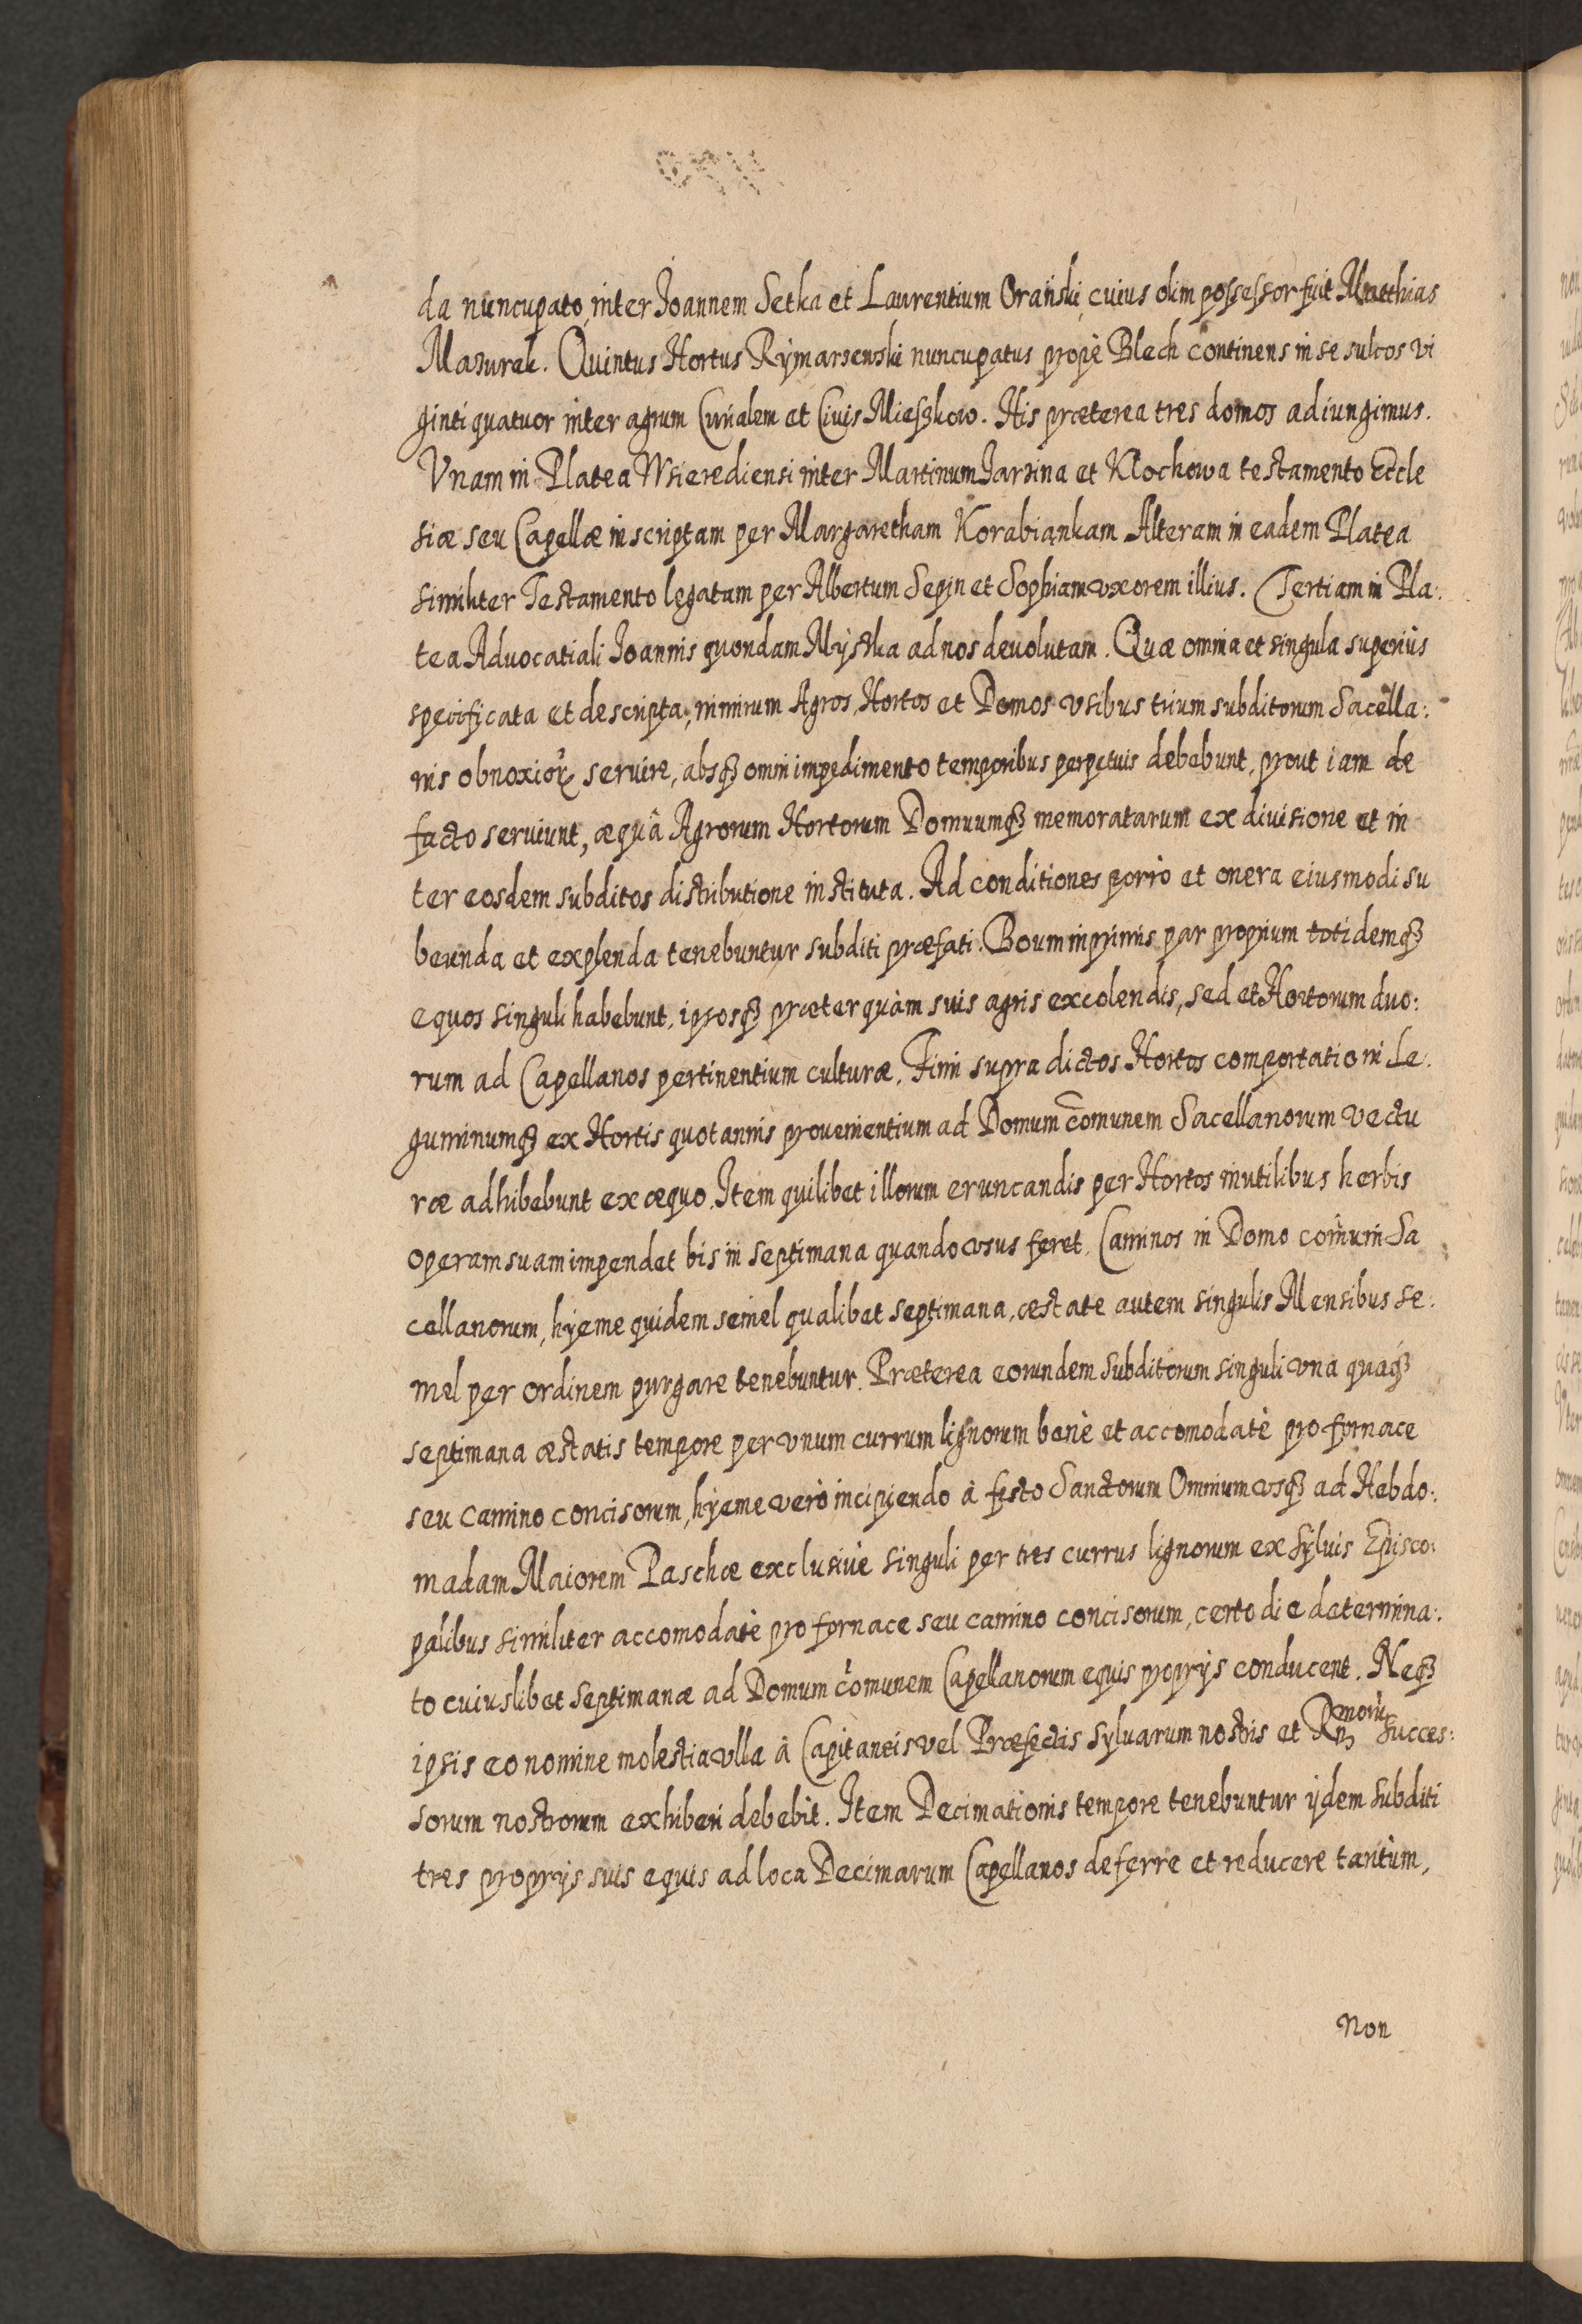 da nuncupato, inter Joannem Setka et Laurentium Orański, cuius olim possessor fuit Matthias
Mazurek. Quintus Hortus Rÿmarzewski nuncupatus propè Blech continens in se sulcos vi
ginti quatuor inter agrum Curialem et Ciuis Mieszkow. His præterea tres domos adiungimus.
Vnam in Platea Wsierediensi inter Martinum Jarzina et Klochowa testamento Eccle
siæ seu Capellæ inscriptam per Margaretham Korabiankam Alteram in eadem Platea
similiter Testamento legatam per Albertum Sepin et Sophiam vxorem illius. Tertiam in Pla:
tea Advocatiali Joannis quondam Mÿstka ad nos deuolutam. Quæ omnia et singula superiùs
specificata et descripta, nimirum Agros, Hortos et Domos vsibus trium subditorum Sacella:
nis obnoxioꝝ seruire, absqꝫ omni impedimento temporibus perpetuis debebunt, prout iam de
facto seruiunt, æquâ Agrorum Hortorum Domuumqꝫ memoratarum ex divisione et in
ter eosdem subditos distributione instituta. Ad conditiones porrò et onera eiusmodi su
beunda et explenda tenebuntur subditi præfati. Boum inprimis par proprium totidemqꝫ
equos singuli habebunt, ipsosqꝫ præterquàm suis agris excolendis, sed et Hortorum duo:
rum ad Capellanos pertinentium culturæ, Fimi supra dictos Hortos comportationi Le:
guminumqꝫ ex Hortis quotannis prouenientium ad Domum com̃unem Sacellanorum vectu
ræ adhibebunt ex æquo. Item quilibet illorum eruncandis per Hortos inutilibus herbis
operam suam impendet bis in septimana quando vsus feret. Caminos in Domo com̃uni Sa
cellanorum, hÿeme quidem semel qualibet septimana, æstate autem singulis Mensibus se:
mel per ordinem purgare tenebuntur. Præterea eorundem Subditorum singuli vna quaqꝫ
septimana æstatis tempore per vnum currum lignorum benè et accomodatè pro fornace
seu camino concisorum, hÿeme verò incipiendo à festo Sanctorum Omnium vsqꝫ ad Hebdo:
madam Maiorem Paschæ exclusiuè singuli per tres currus lignorum ex Sÿluis Episco:
palibus similiter accomodatè pro fornace seu camino concisorum, certo die determina:
to cuiuslibet Septimanæ ad Domum com̃unem Capellanorum equis proprÿs conducent. Neqꝫ
ipsis eo nomine molestia vlla à Capitaneis vel Præfectis Sÿluarum nostris et Rñꝫmorũ Succes:
sorum nostrorum exhiberi debebit. Item Decimationis tempore tenebuntur ÿdem Subditi
tres proprÿs suis equis ad loca Decimarum Capellanos deferre et reducere tantùm,
Non